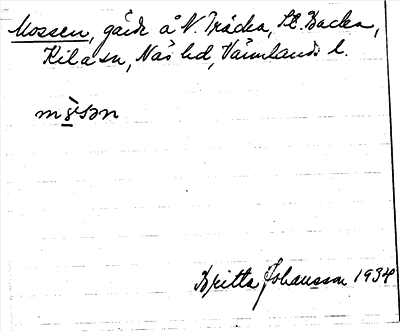 Mossen, gård å N. Träcka, St. Backa,
Kila sn, Näs hd, Värmlands l.
mo̤sən
Britta Johansson 1934